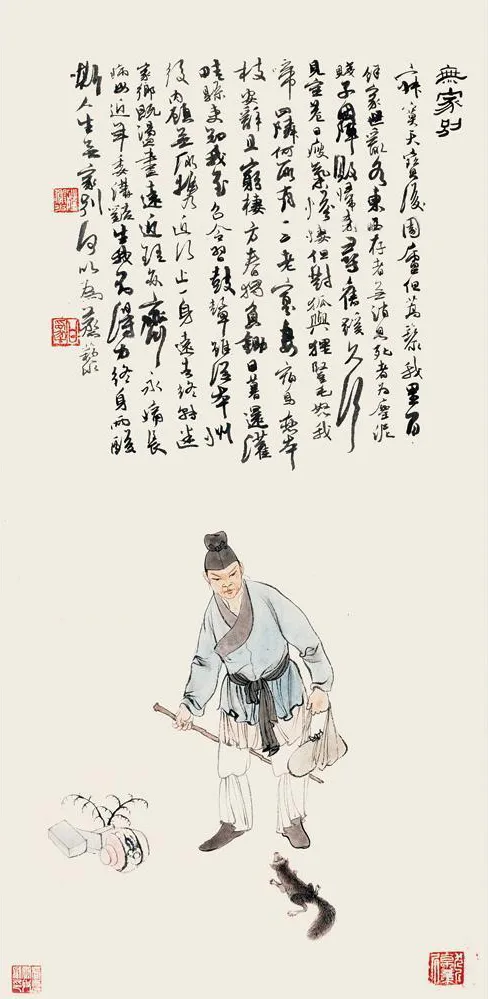 無家別
寂寞天寶後園廬但蒿藜我里百
餘家世亂各東西存者無消息死者為塵泥
賤子因陣敗歸來尋舊蹊久行
見空巷日瘦氣慘悽但對狐與狸豎毛怒我
啼四鄰何所有一二老寡妻宿鳥戀本
枝安辭且窮棲方春獨負鋤日暮還灌
畦縣吏知我至召令習鼓鞞雖從本州
役內顧無所攜近行止一身遠去終轉迷
家鄉既蕩盡遠近理亦齊永痛長
病母五年委溝谿生我不得力終身兩酸
嘶人生無家別何以為蒸黎